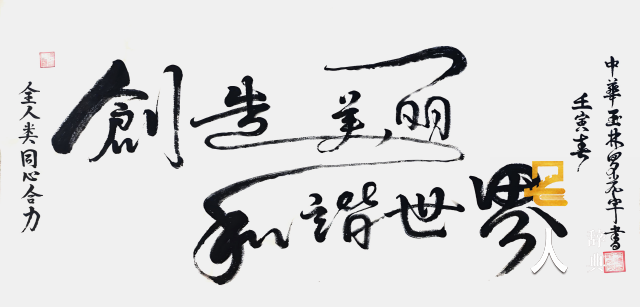 全人类同心合力
創造美丽
和諧世界
壬寅春
中華玉林罗元宇書
人
辞典